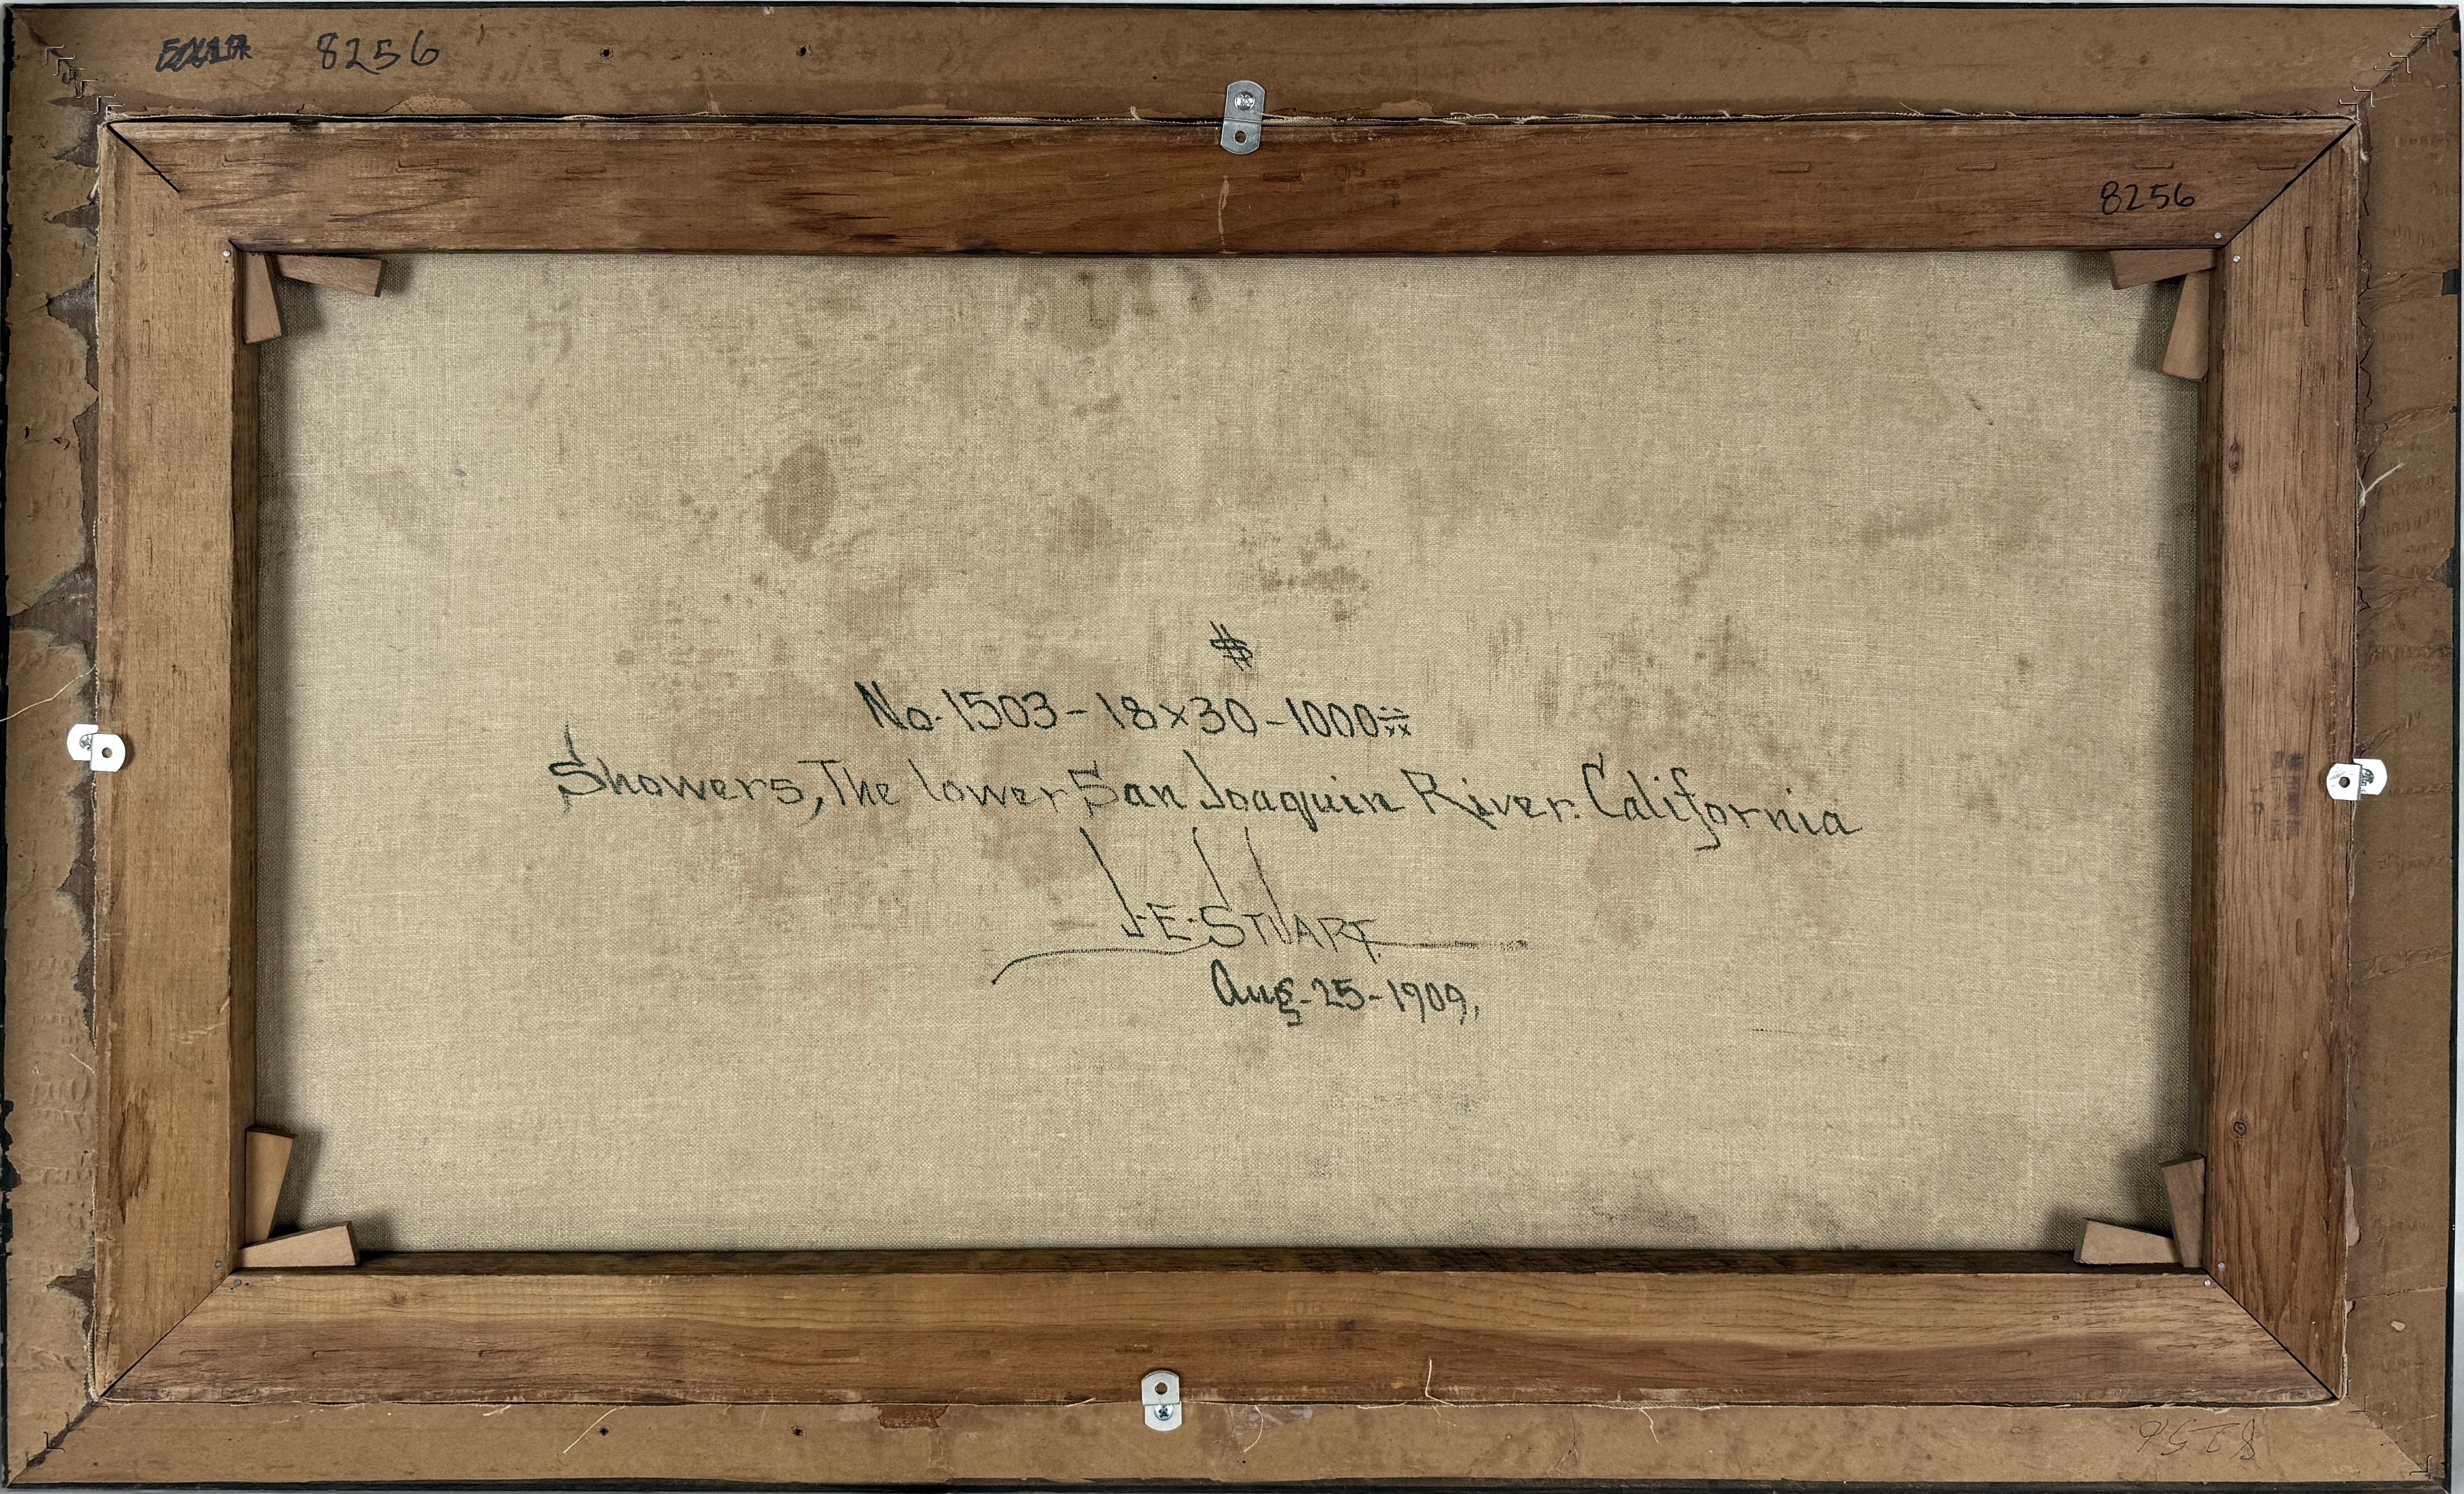 8256
8256
$
No. 1503 - 18x30 - 1000
Showers, The lower San Joaquin River. California
J. E. STUART.
Aug-25-1909,
8256